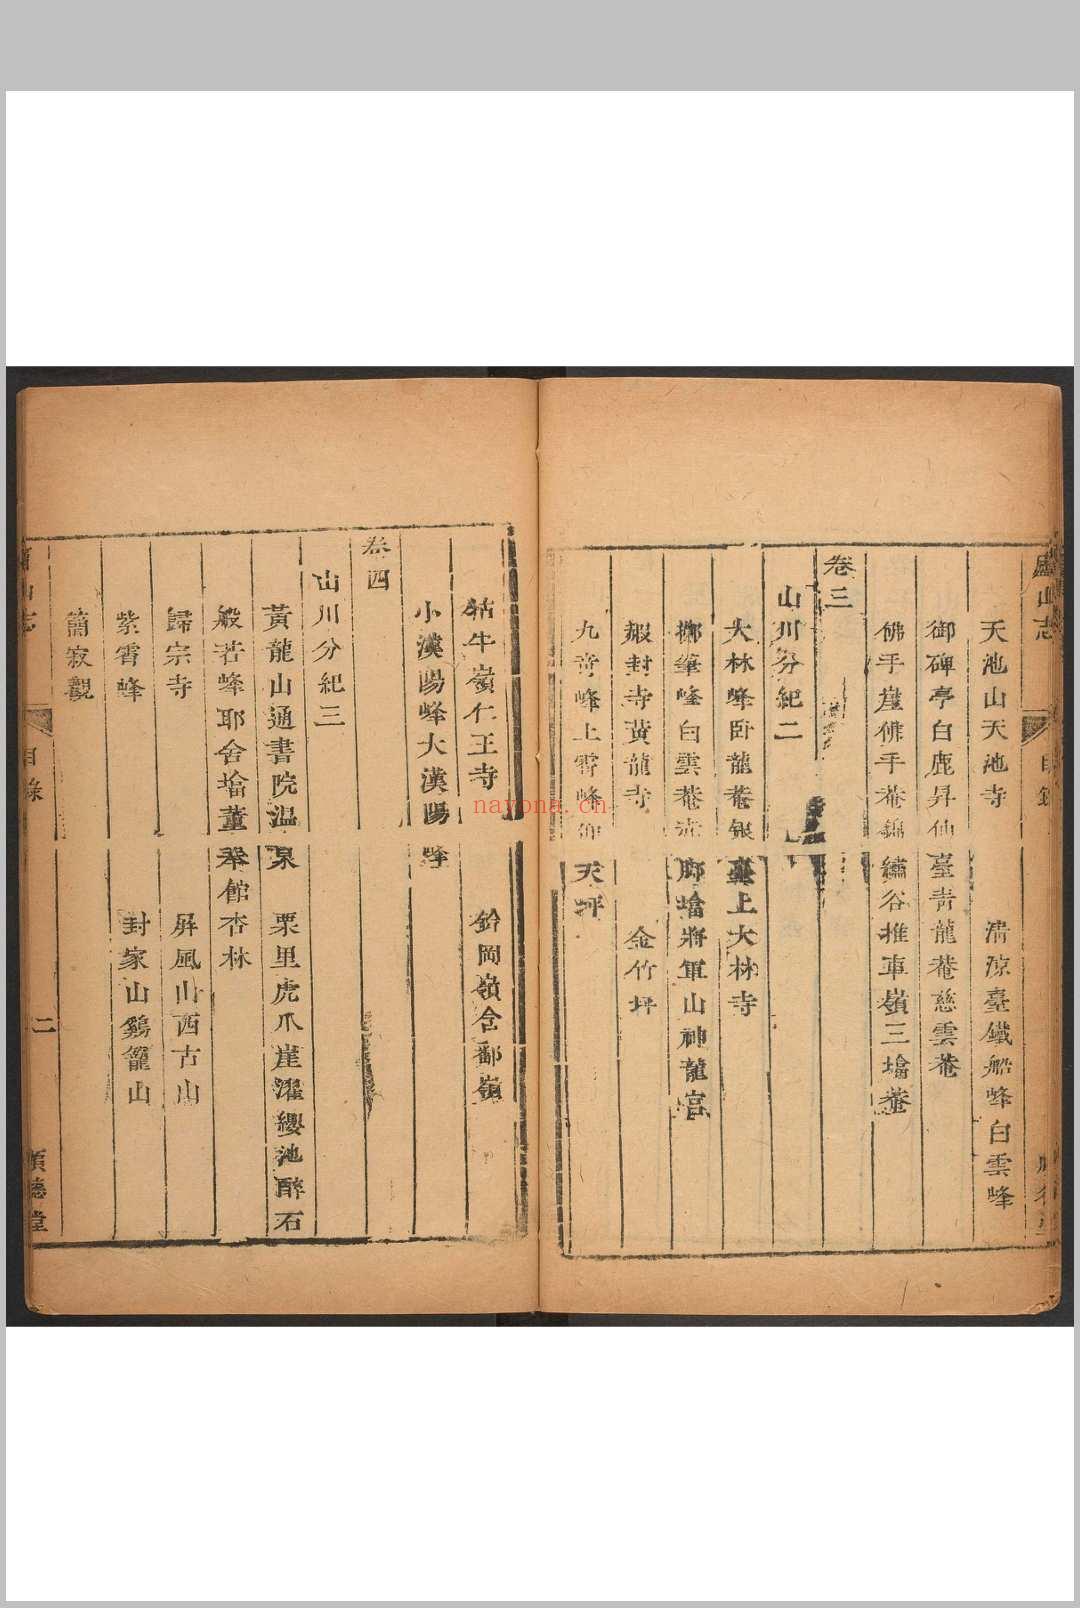 廬山志
目錄
天池山天池寺 清涼臺鐵船峰白雲峰
御碑亭白鹿昇仙臺青龍菴慈雲菴
佛手崖佛手菴錦繡谷推車嶺三塔菴
卷三
山川分紀二
大林峰臥龍菴銀臺上大林寺
擲筆峰白雲菴 廊塔將軍山神龍宮
報封寺黃龍寺 金竹坪
九奇峰上霄峰仰天坪
牯牛嶺仁王寺 鈴岡嶺含鄱嶺
小漢陽峰大漢陽峰
卷四
山川分紀三
黃龍山通書院溫泉 栗里虎爪崖濯纓池醉石
般若峰耶舍塔董奉館杏林
歸宗寺 屏風山西古山
紫霄峰 封家山鷄籠山
簡寂觀
山志
目錄
二
順德堂
nayona.cn